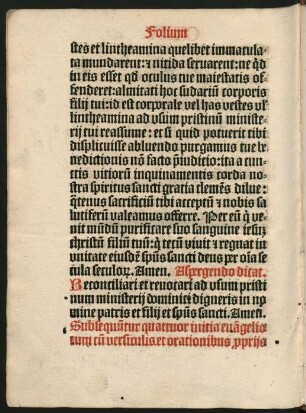 Folium
stes et lintheamina quelibet immacula-
ta mundarent: et nitida seruarent: ne qd
in eis esset qd oculus tue maiestatis of-
fenderet: almitati hoc sudariũ corporis
filij tui: id est corporale vel has vestes vl'
lintheamina ad vsum pristinũ ministe-
rij tui reassume: et si quid potuerit tibi
displicuisse abluendo purgamus tue be-
nedictionis nõ sacto p̃iudicio: ita a cun-
ctis vitiorũ inquinamentis corda no-
stra spiritus sancti gratia clemẽs dilue:
q̃tenus sacrificiũ tibi acceptũ et nobis sa-
lutiferũ valeamus offerre. Per eũ q̃ ve-
nit mũdũ purificare suo sanguine iesuȝ
christũ filiũ tuũ: q̃ tecũ viuit et regnat in
vnitate eiusdẽ sp̃us sancti deus per oĩa se-
cula seculoꝝ. Amen. Aspergendo dicat.
Reconciliari et reuocari ad vsum pristi
num ministerij dominici digneris in no-
mine patris et filij et sp̃us sancti. Amẽ.
Subsequũtur quattuor initia euãgelio
rum cũ versiculis et orationibus ꝓprijs